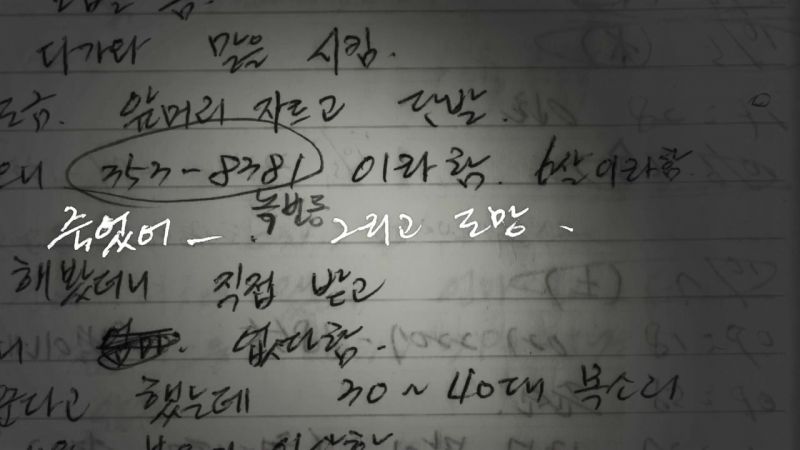 다가와 말을 시킴.
앞머리 자르고 단발.
353-8381 이라 함. 6살이라함
녹번동
죽었어 - 그리고 도망.
해봤더니 직접 받고
없다함.
했는데 30~40대 목소리